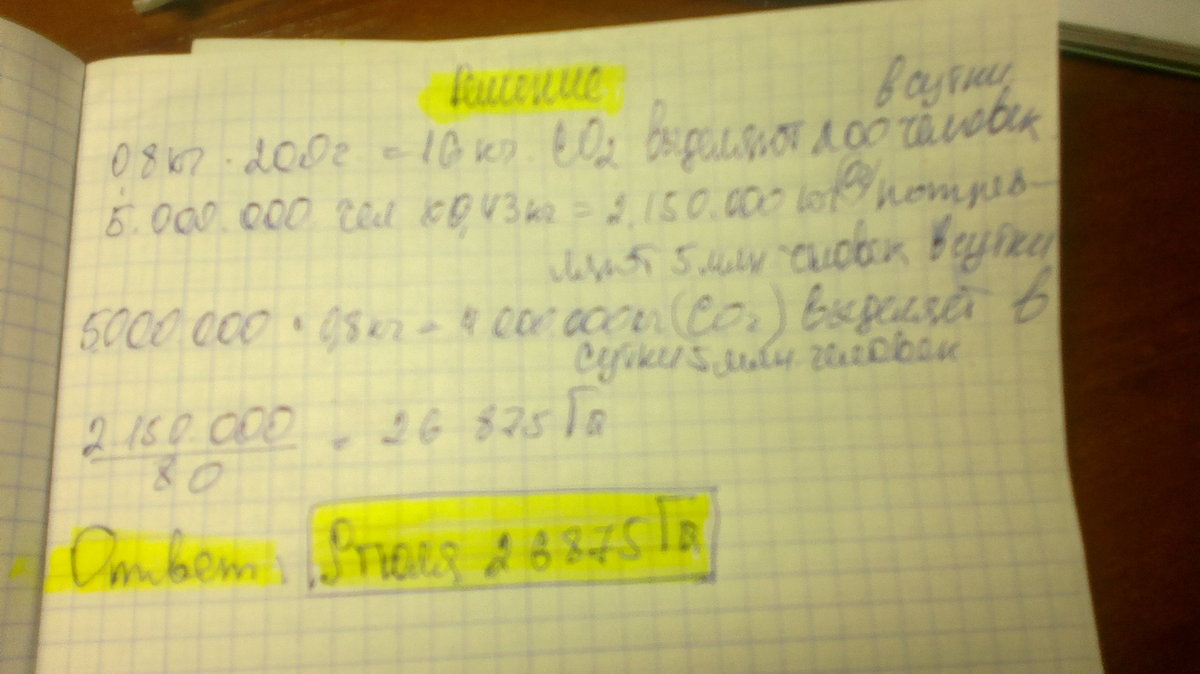 Решение
0,8 кг · 200г = 16 кг. CO2 выделяют 200 человек в сутки
5.000.000 чел х 0,43 кг = 2.150.000 кг (O2) потреб-
ляют 5 млн человек в сутки
5000.000 · 0,8 кг = 4 000.000 кг (CO2) выделяет в
сутки 5 млн. человек
2 150.000 / 80 = 26 875 Га
Ответ: Sполя 26875 Га